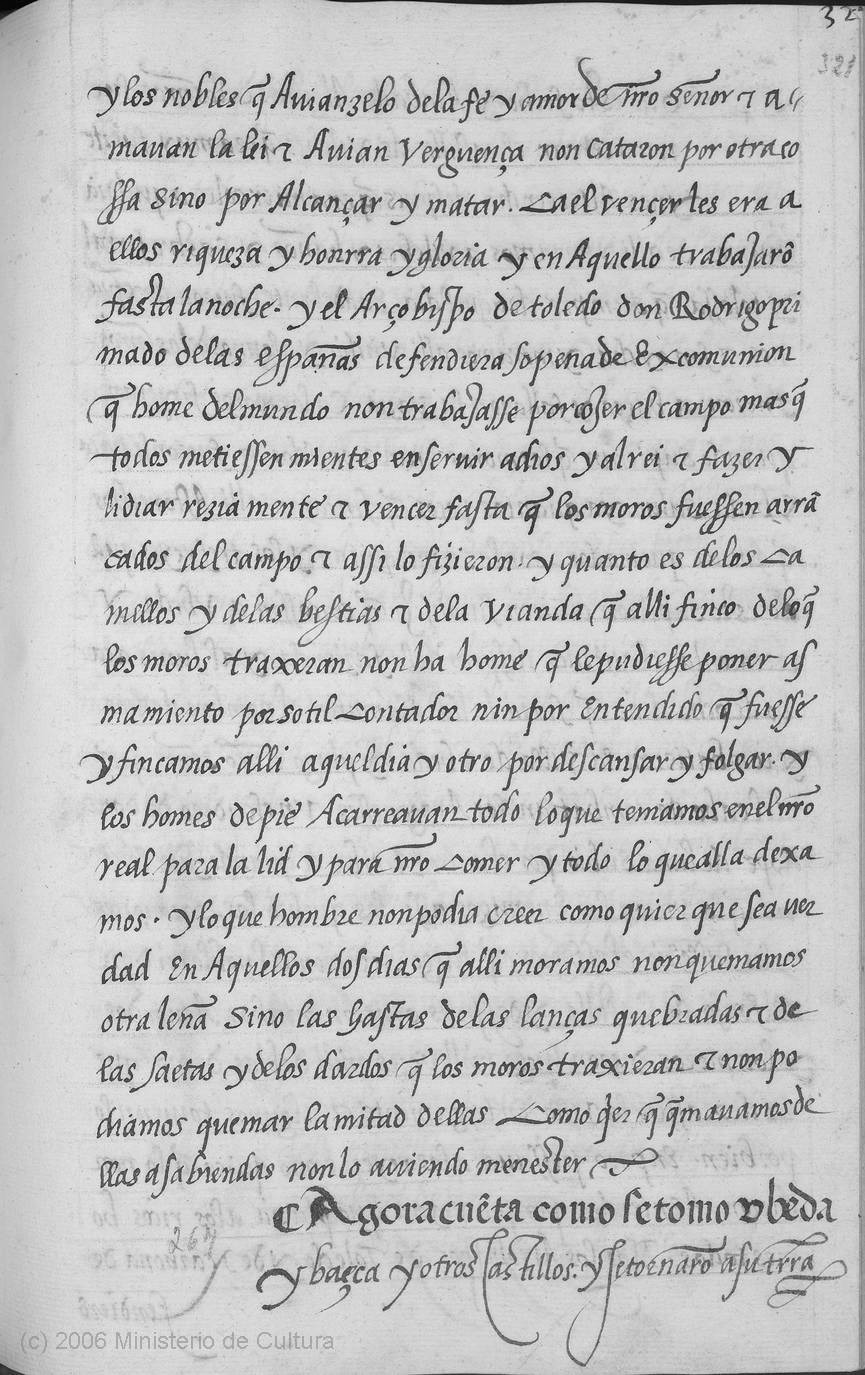 32
321
y los nobles q̃ Auian zelo dela fe y amor de nr̃o señor ⁊ a-
mauan la lei ⁊ Auian Verguença non Cataron por otra co
ssa Sino por Alcançar y matar. Ca el vençerles era a
ellos riqueza y honrra y gloria y en Aquello trabajarõ
fasta la noche. y el Arçobispo de toledo don Rodrigo pri
mado delas españas defendiera so pena de Excomunion
q̃ home del mundo non trabajasse por cojer el campo mas q̃
todos metiessen mientes en seruir a dios y al rei ⁊ fazer y
lidiar reziamente ⁊ vencer fasta q̃ los moros fuessen arrã
cados del campo ⁊ assi lo fizieron. y quanto es delos Ca
mellos y delas bestias ⁊ dela Vianda q̃ alli finco delo q̃
los moros traxeran non ha home q̃ le pudiesse poner as
mamiento por sotil Contador nin por Entendido q̃ fuesse
y fincamos alli aquel dia y otro por descansar y folgar. y
los homes de pie Acarreauan todo lo que teniamos en el nr̃o
real para la lid y para nr̃o Comer y todo lo que alla dexa
mos. y lo que hombre non podia creer como quier que sea ver
dad En Aquellos dos dias q̃ alli moramos non quemamos
otra leña Sino las hastas delas lanças quebradas ⁊ de
las saetas y delos dardos q̃ los moros traxieran ⁊ non po
diamos quemar la mitad dellas Como q̃er q̃ q̃mauamos de
llas a sabiendas non lo auiendo menester
¶ Agora cuẽta como se tomo vbeda
y baeça y otros Castillos. y se tornarõ a su trr̃a
(c) 2006 Ministerio de Cultura